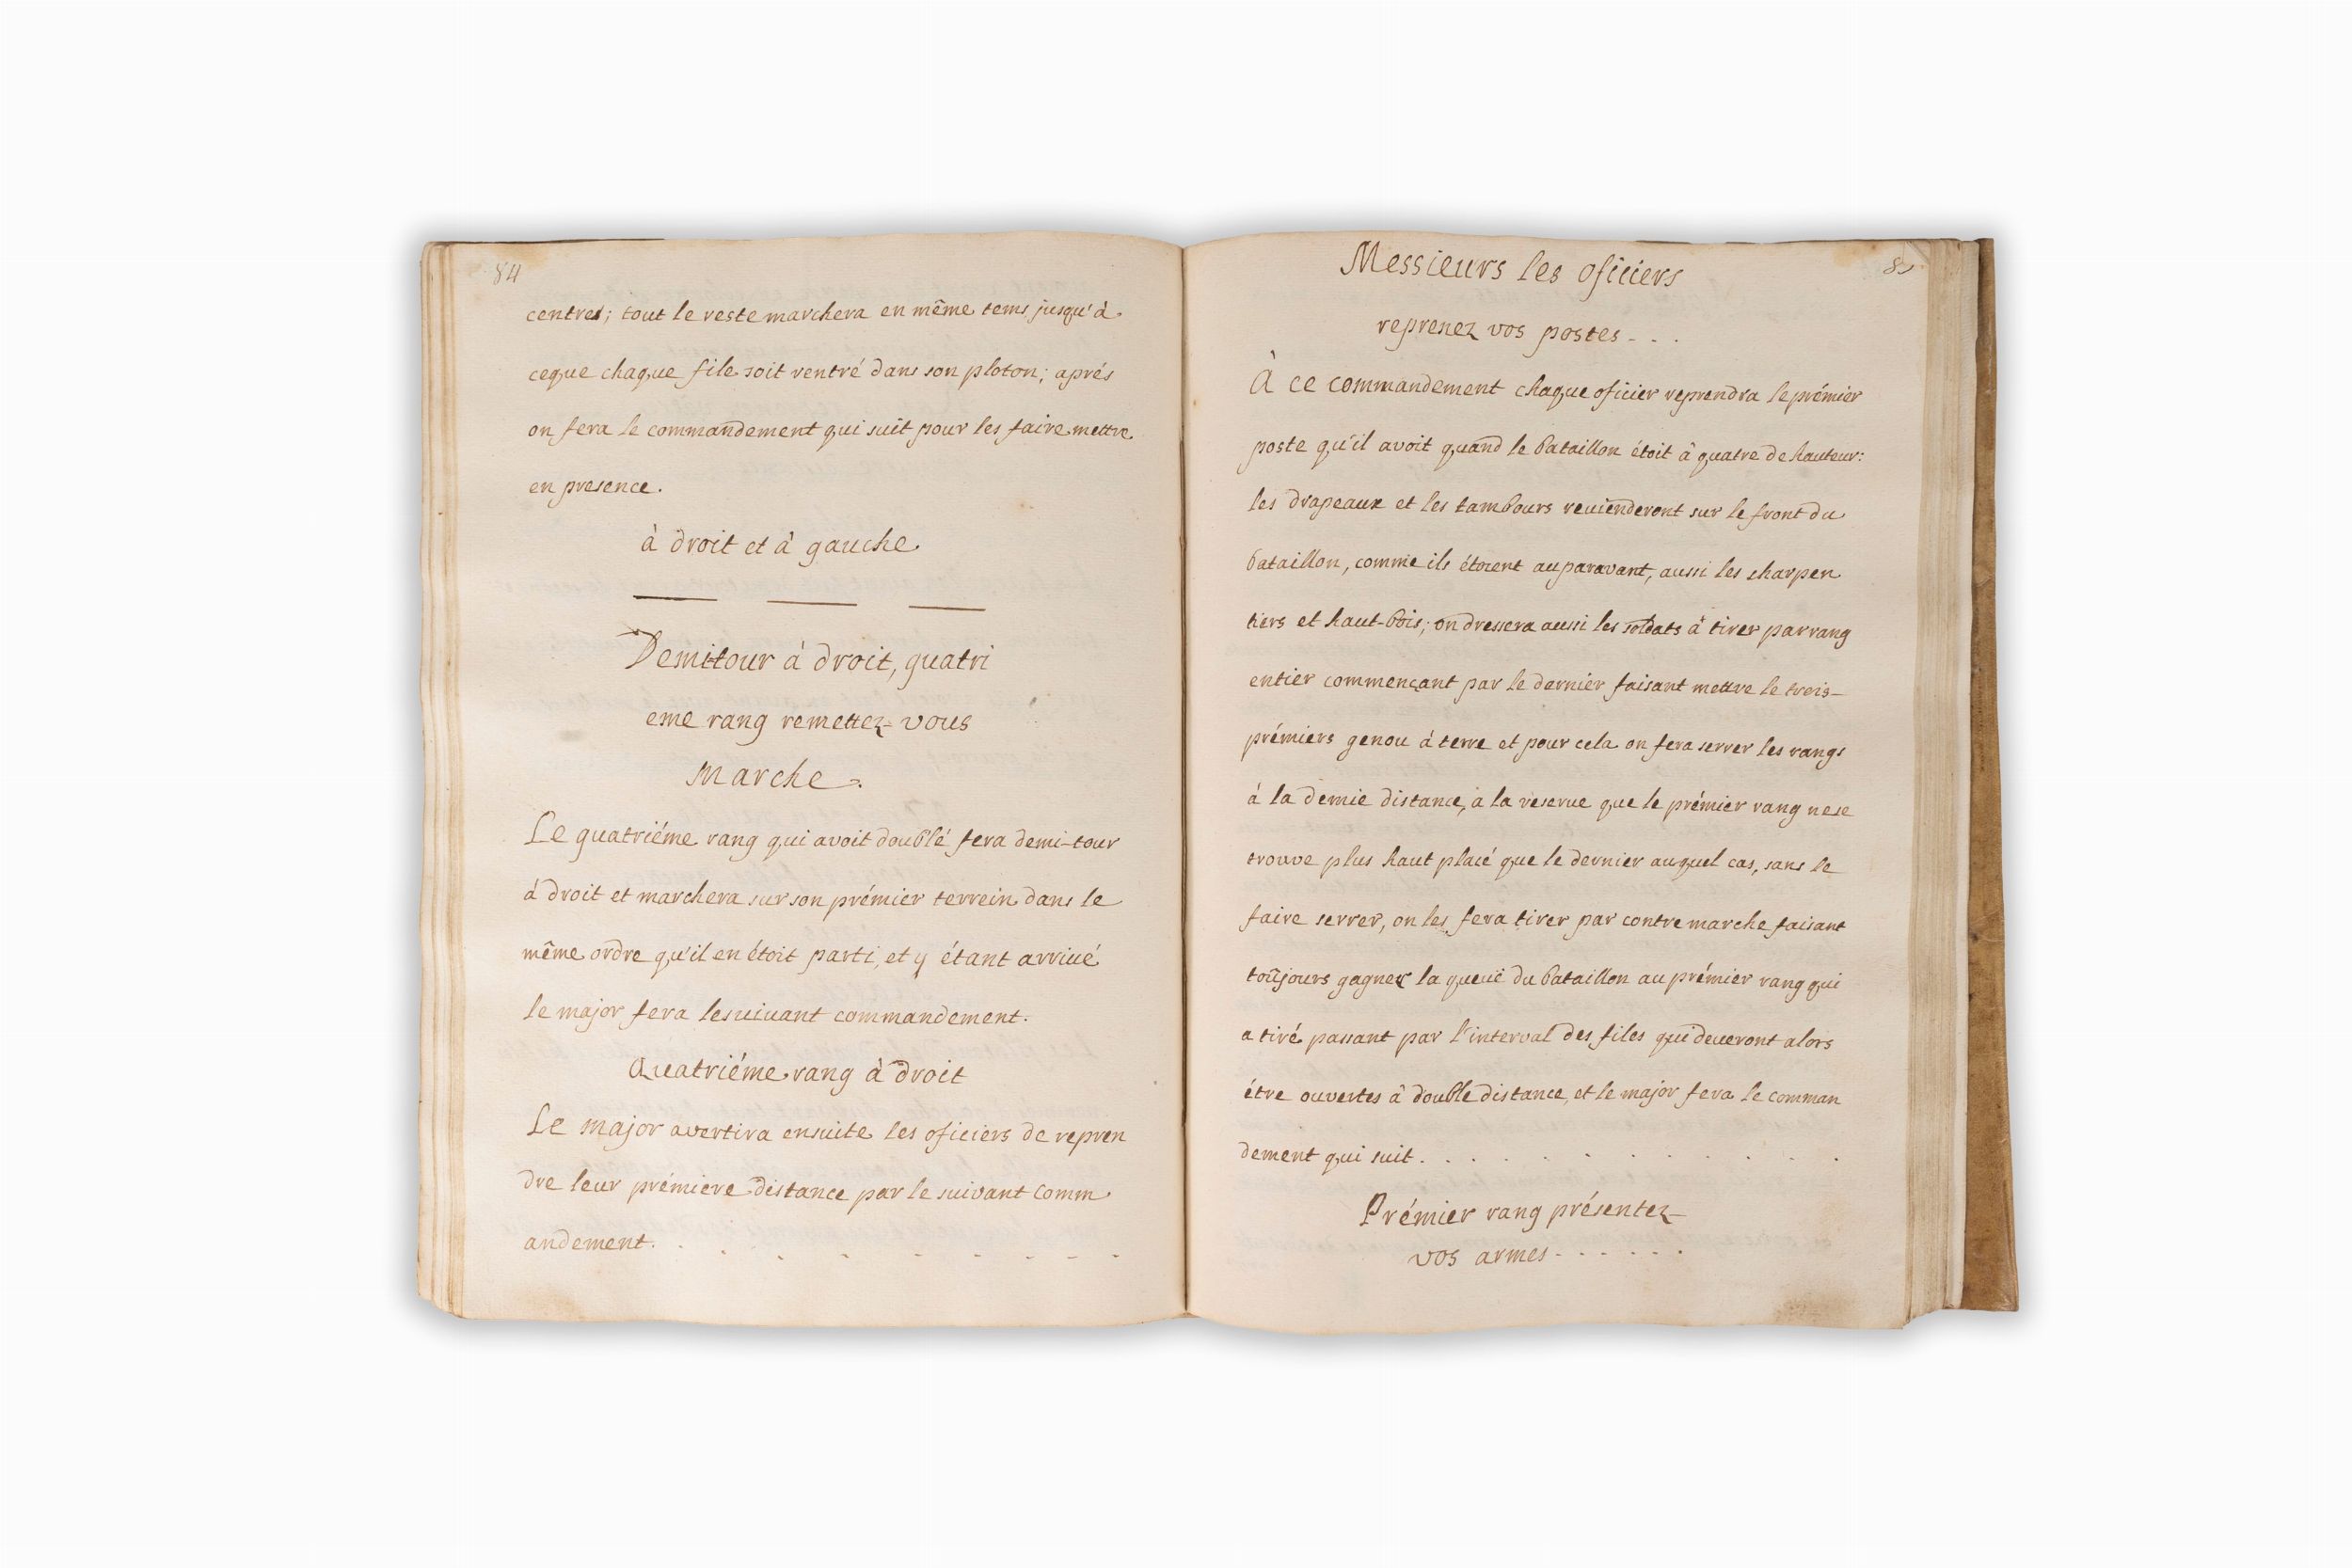 84
centres; tout le reste marchera en même tems, jusqu'à
ceque chaque file soit rentré dans son ploton; aprés
on fera le commandement qui suit pour les faire mettre
en presence.
à droit et à gauche
Demitour à droit, quatri
eme rang remettez-vous
marche.
Le quatriéme rang qui avoit doublé fera demi-tour
à droit et marchera sur son prémier terrein dans le
même ordre qu'il en étoit parti, et y étant arriué
le major fera lesuiuant commandement.
Quatriéme rang à droit
Le major avertira ensuite les oficiers de repren
dre leur prémiere distance par le suivant comm
andement. . . . . . . . . .
85
Messieurs les oficiers
reprenez vos postes - . .
À ce commandement chaque oficier reprendra le prémier
poste qu'il avoit quand le bataillon étoit à quatre de hauteur:
les drapeaux et les tambours reuienderont sur le front du
bataillon, comme ils étoient auparavant, aussi les charpen
tiers et haut-bois; on dressera aussi les soldats à tirer par rang
entier commençant par le dernier faisant mettre le trois-
prémiers genou à terre et pour cela on fera serrer les rangs
à la demie distance, à la reserue que le prémier rang nese
trouve plus haut placé que le dernier auquel cas, sans le
faire serrer, on les fera tirer par contre marche faisant
toûjours gagner la queuë du bataillon au prémier rang qui
a tiré passant par l'interval des files qui deueront alors
étre ouvertes à double distance, et le major fera le comman
dement qui suit . . . . . . . . . .
Prémier rang présentez-
vos armes - . . . . .